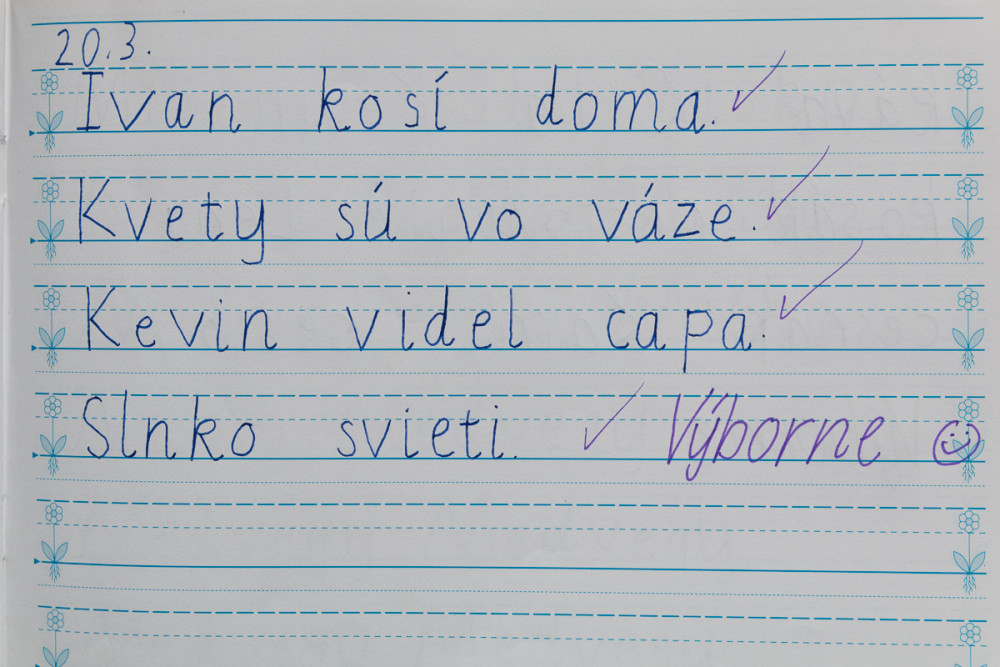 20.3.
Ivan kosí doma.
Kvety sú vo váze.
Kevin videl capa.
Slnko svieti. Výborne